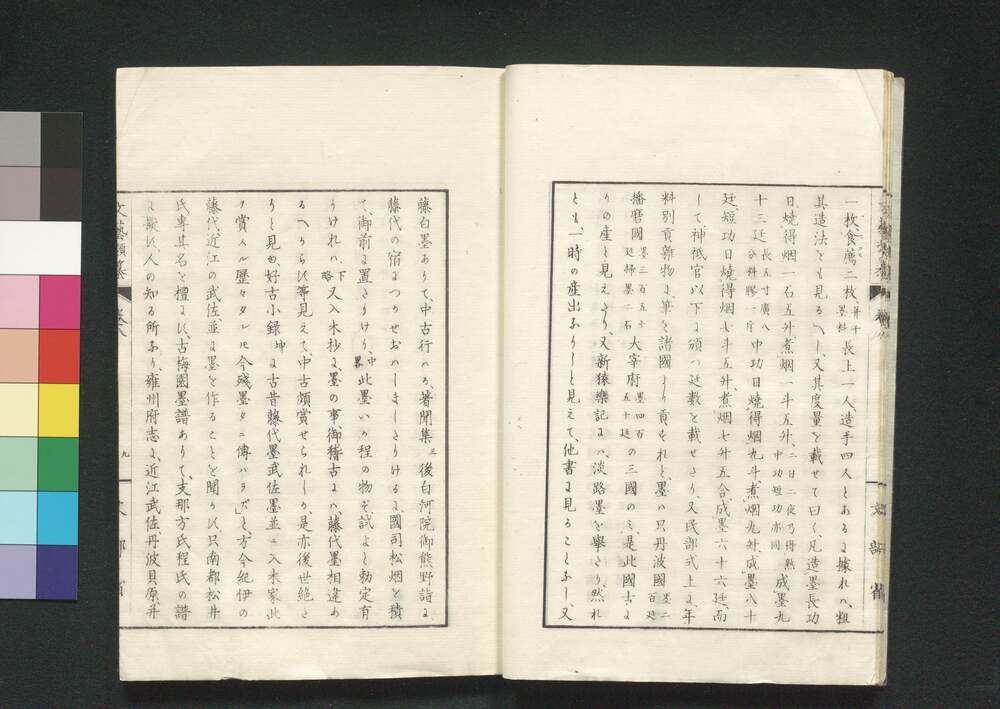 一枚食薦二枚、并干墨料長上一人、造手四人とあるに據れハ、粗
其造法とも見るへし、又其度量を載せて曰く、凡造墨長功
日燒得烟一石五升、煮烟一斗五升、二日二夜乃得熟中功短功亦同成墨九
十三廷、長五寸廣八分料膠一斤中功日燒得烟九斗、煮烟九升、成墨八十
廷、短功日燒得烟七斗五升、煮烟七升五合、成墨六十六廷、而
して神祇官以下に頒つ廷數を載せたり、又民部式上に、年
料別貢雜物に、筆を諸國より貢すれと、墨ハ只丹波國墨二百廷
播磨國墨三百五十廷掃墨二石大宰府墨四百五十廷の三國のミ、是此國土よ
りの産と見えたり、又新猿樂記にハ、淡路墨を擧たり、然れ
とも、一時の産出なりしと見えて、他書に見ることなし又
藤白墨ありて、中古行ハる、著聞集三後白河院御熊野詣に
藤代の宿につかせおハしましたりけるに、國司松烟を積
て、御前に置たりけり、中畧此墨いか程の物そ試よと勅定有
りけれハ、下略又入木抄に墨の事、御稽古にハ、藤代墨相違あ
るへからす等見えて、中古頗賞せられしか、是亦後世絶た
りと見ゆ、好古小録坤に古昔藤代墨武佐墨並ニ入木家此
ヲ賞スル歷々タレトモ今殘墨タニ傳ハラズ」と、方今紀伊の
藤代近江の武佐、並に墨を作ることを聞かす、只南都松井
氏專其名を檀にす、古梅園墨譜ありて、支那方氏、程氏の譜
に擬す、人の知る所なり、雍州府志に、近江武佐丹波貝原并
文藝類纂
卷八
九
文部省